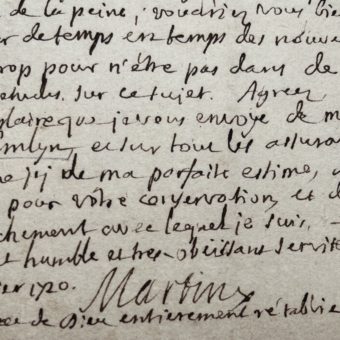 de la peine, voudriez vous bie
de temps en temps des nouve
rop pour n'être pas dans de
etudes sur ce sujet. Agreez
plaire que je vous envoye de m
Emlyn, et sur tout les assura
de ma parfaite estime,
pour votre conservation, et d
chement avec lequel je suis.
humble et tres-obeissant servite
er 1720. Martin
ce de Dieu entierement rétablie